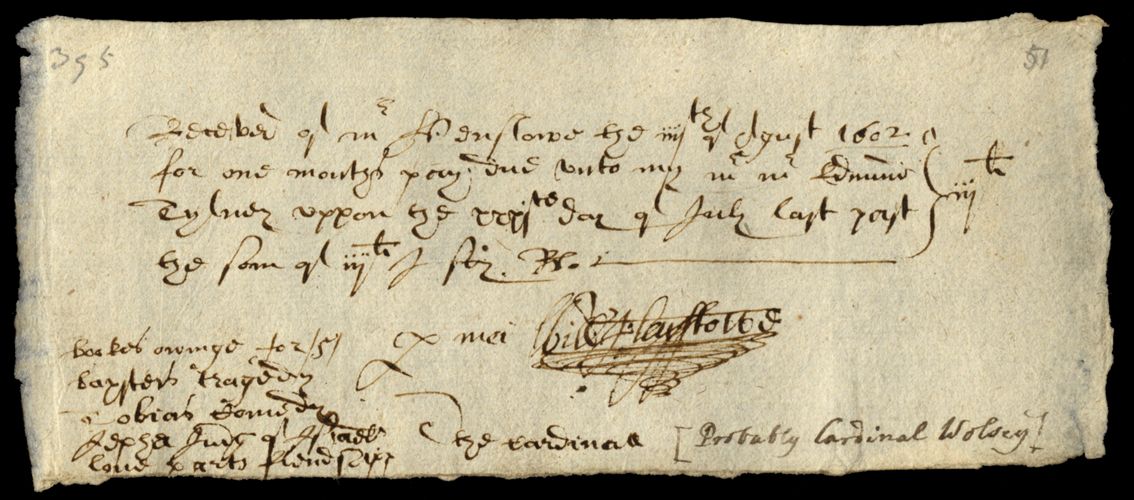 395
51
Receved of mr Henslowe the iiijth of Agust 1602
for one months pay due vnto my mr mr Edmund
Tylney vppon the xxxjte day of July last past
the som of iijli I say Re.
iijli
ex mei Will Playstowe
bookes owinge for /5/
baxsters tragedy
Tobias Comedy
Jepha Judg of Israell
loue parts frendshipp
The Cardinall
[Probably Cardinal Wolsey]